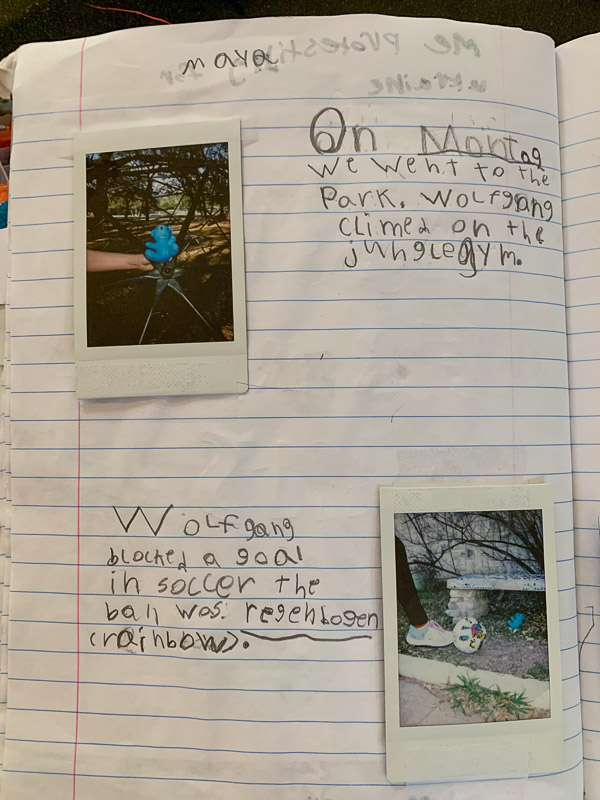 On Montag
we went to the
Park. Wolfgang
climed on the
junglegym.
Wolfgang
blocked a goal
in soccer the
ball was regenbogen
(rainbow).